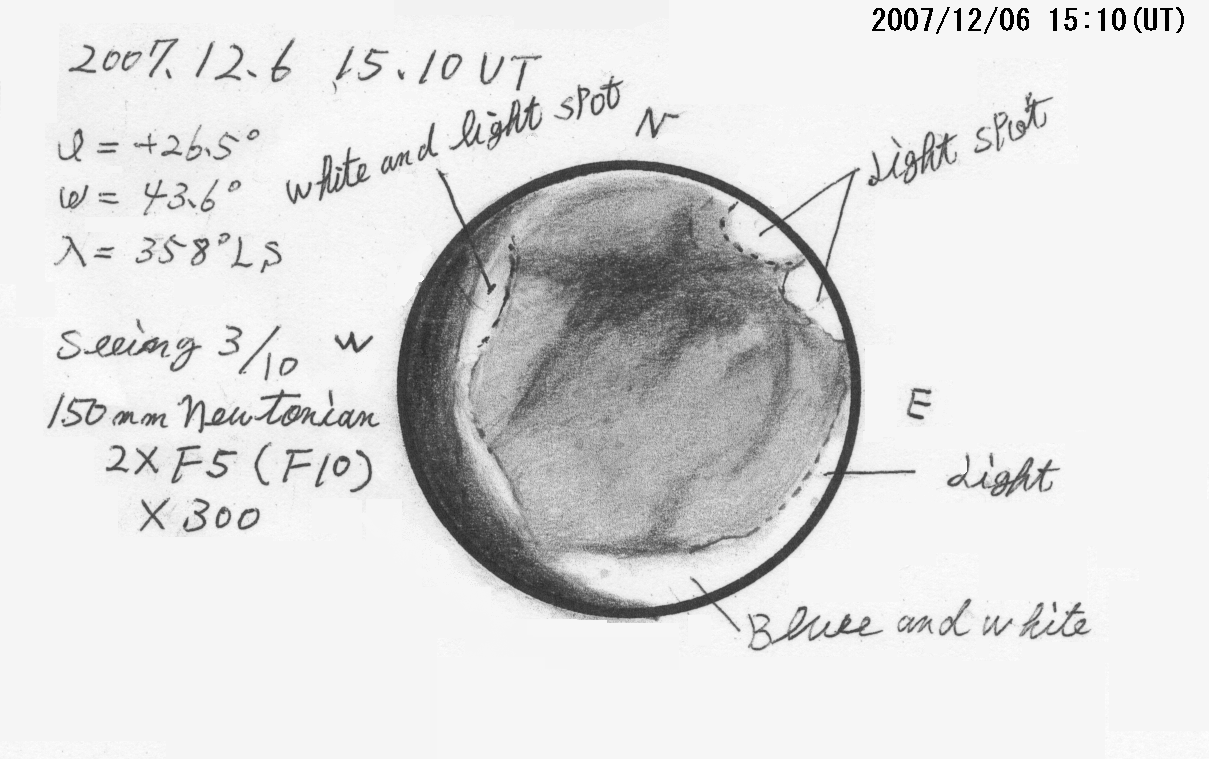 2007/12/06 15:10(UT)
2007.12.6 15.10 UT
white and light spot
N
Light spot
φ = +26.5°
ω = 43.6°
λ = 358°LS
Seeing 3/10
W
150mm Newtonian
2X F5 (F10)
X 300
E
Light
Bluee and white